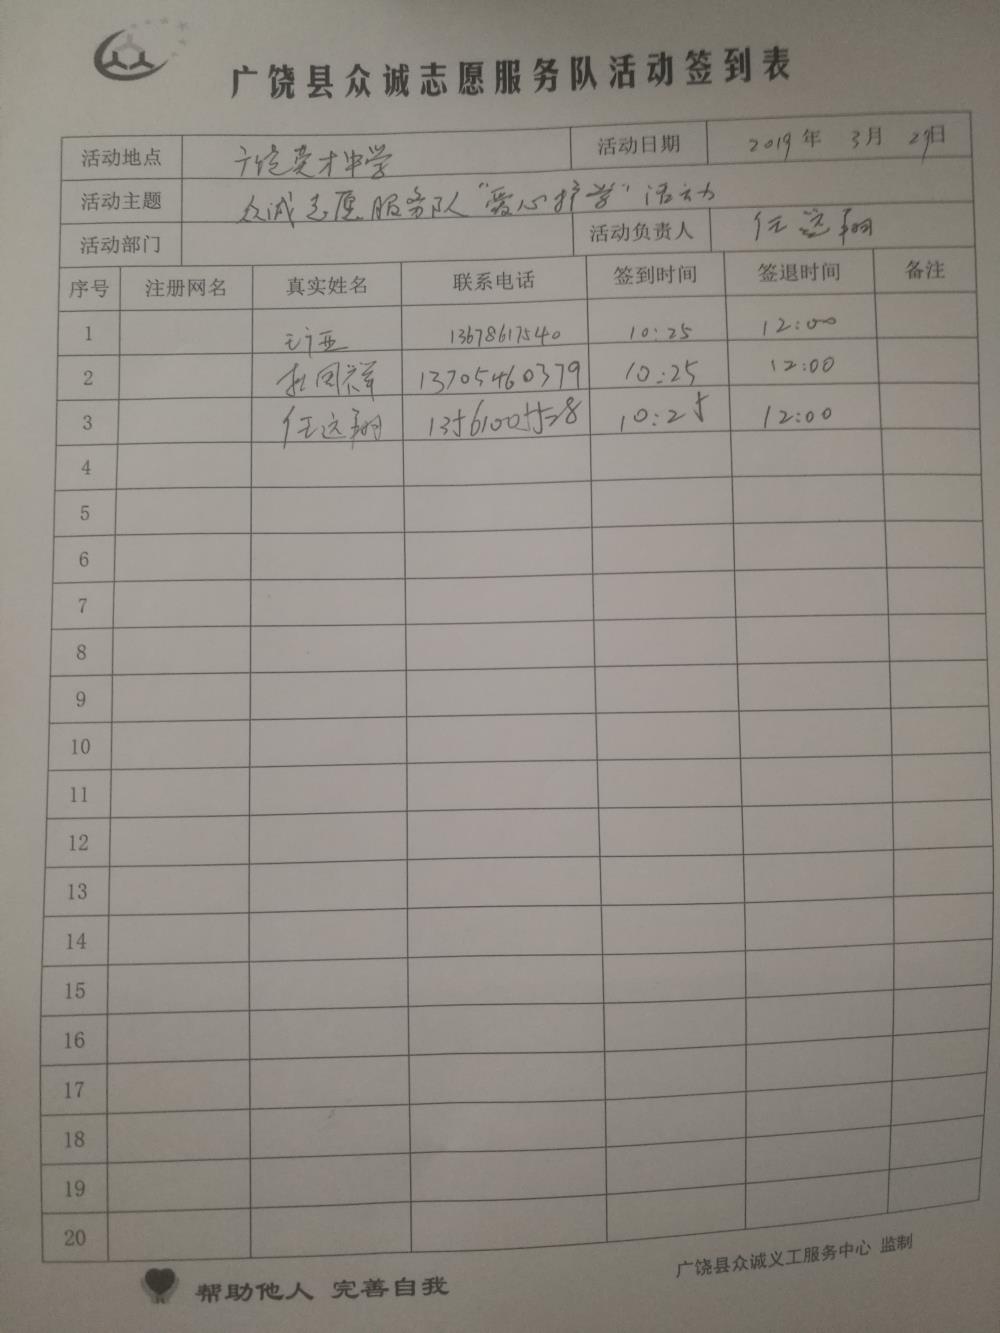 广饶县众诚志愿服务队活动签到表
活动地点 广饶英才中学 活动日期 2019年 3月 27日
活动主题 众诚志愿服务队"爱心护学"活动
活动部门 活动负责人 任远翔
序号 注册网名 真实姓名 联系电话 签到时间 签退时间 备注
1 13678617540 10:25 12:00
2 杜同祥 13705460379 10:25 12:00
3 任远翔 10:25 12:00
4
5
6
7
8
9
10
11
12
13
14
15
16
17
18
19
20
帮助他人 完善自我 广饶县众诚义工服务中心 监制